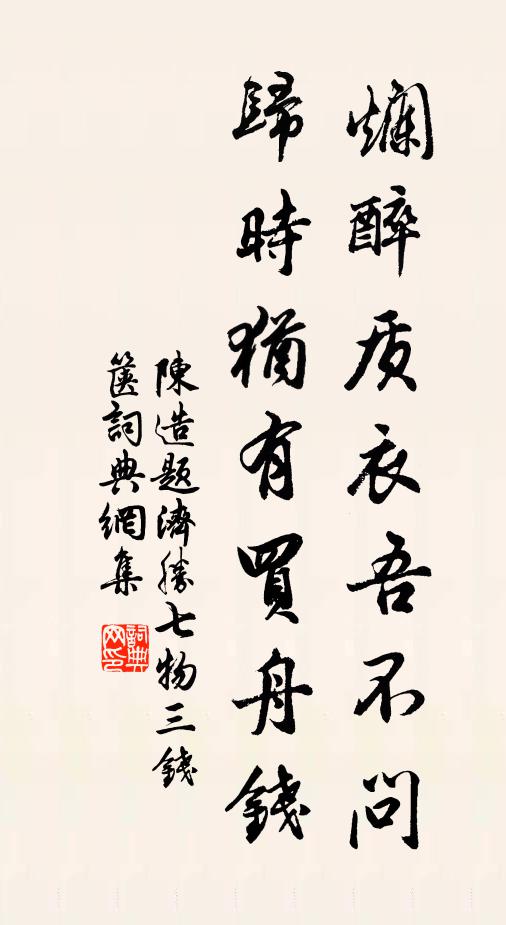 爛醉质衣吾不問
歸時猶有買舟錢
陳造題濟勝七物三錢
篋詞典網集
詞典網印